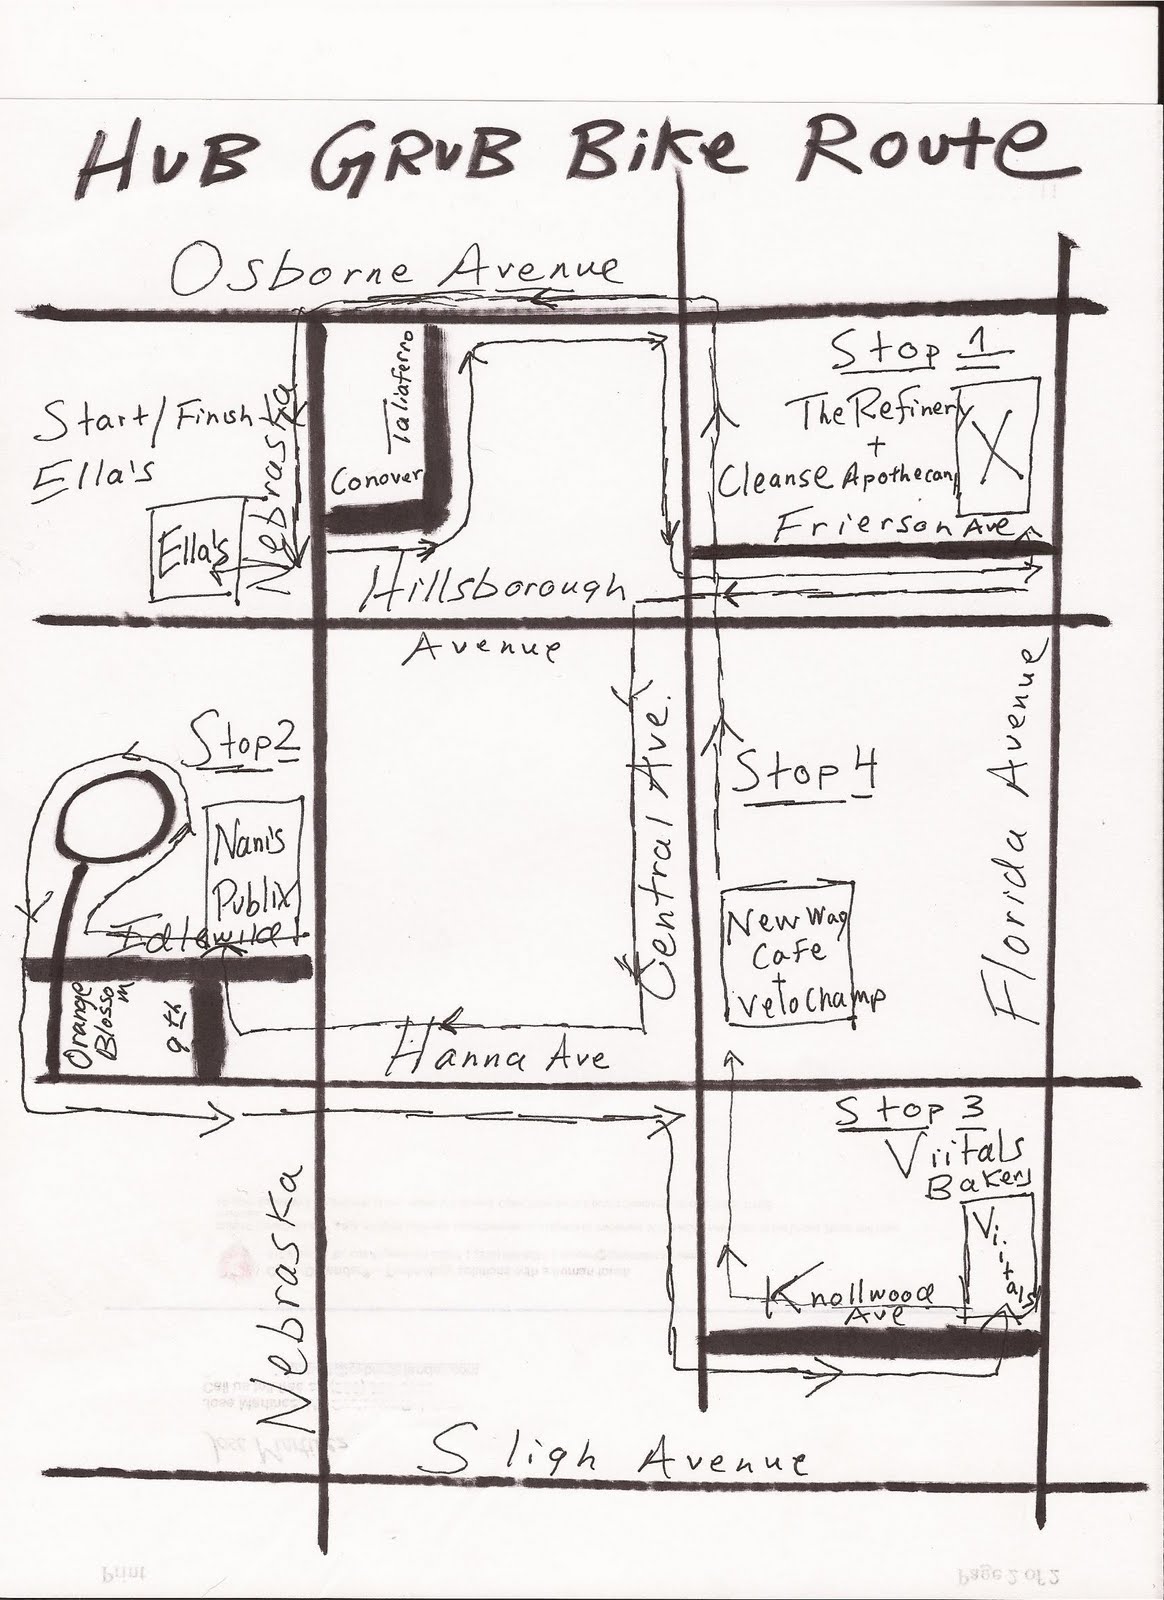 HUB GRUB BIKE ROUTE
Osborne Avenue
Stop 1
The Refinery
+
Cleanse Apothecary
Frierson Ave
Taliaferno
Conover
Start/Finish
Ella's
Ella's
Nebraska
Hillsborough
Avenue
Central Ave.
Florida Avenue
Stop 2
Nani's
Publix
Idlewild
Orange
Blossom
9th
Hanna Ave
Stop 4
New Way
Cafe
+
VeloChamp
Stop 3
Viitals
Bakery
Viitals
Knollwood
Ave
Nebraska
Sligh Avenue
Print
Page 2 of 2